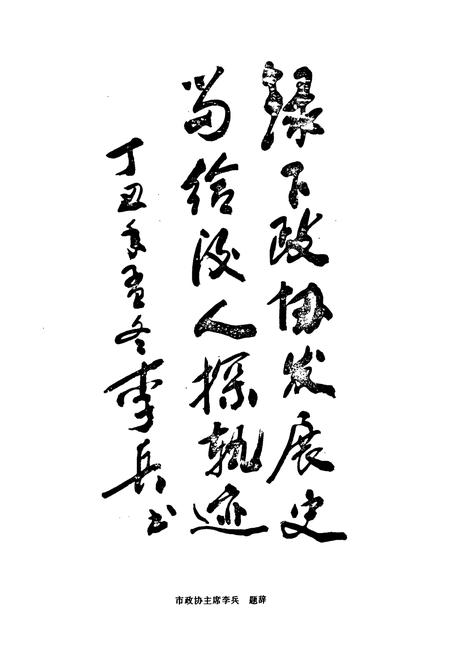 录下政协发展史
留给后人探轨迹
丁丑年孟冬李兵书
市政协主席李兵　题辞